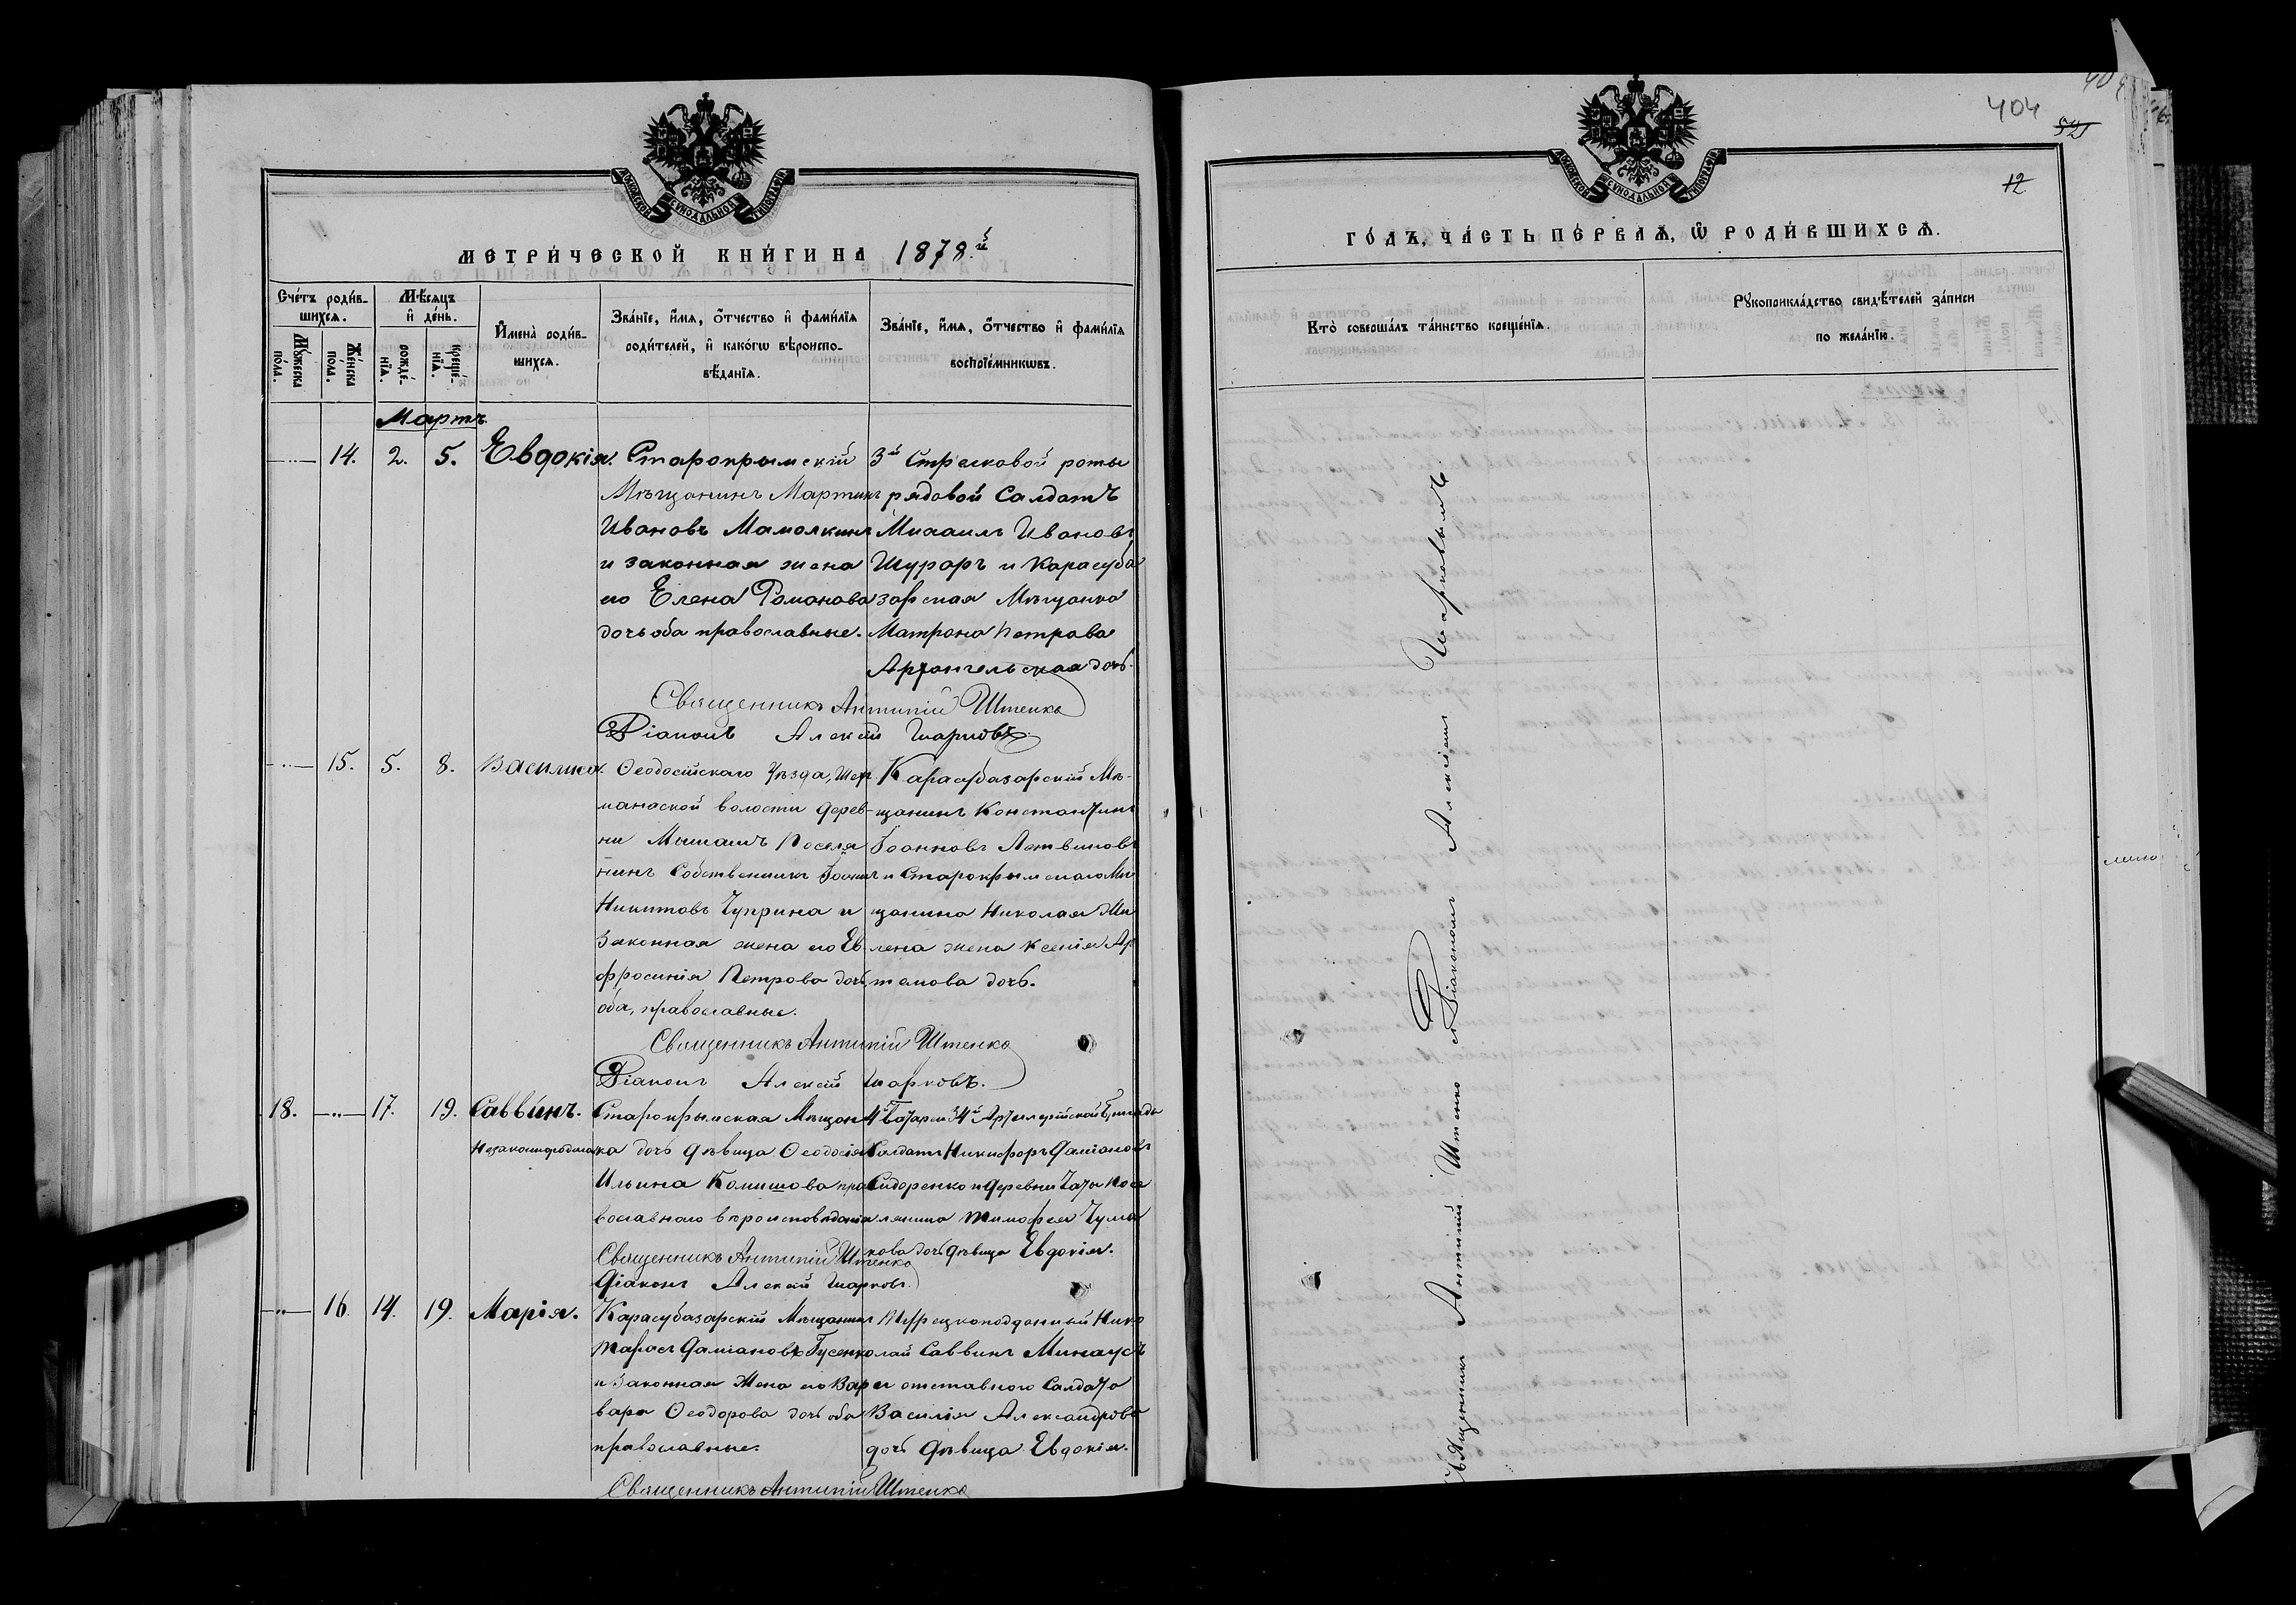 МОСКОВСКОЙ СѴНОДАЛЬНОЙ ТИПОГРАФІИ
МЕТРИ́ЧЕСКОЙ КНИ́ГИ НА 1878.й
Сче́тъ роди́в-
шихсѧ.
Мꙋ́жеска
по́ла.
Же́нска
по́ла.
Мѣ́сѧцъ
и҆ де́нь.
рожде́-
нїѧ.
креще́-
нїѧ.
И҆мена̀ роди́в-
шихсѧ.
Зва́нїе, и҆́мѧ, ѻ҆́тчество и҆ фами́лїѧ
роди́телей, и҆ како́гѡ вѣроиспо-
вѣ́данїѧ.
Зва́нїе, и҆́мѧ, ѻ҆́тчество и҆ фами́лїѧ
воспрїе́мникѡвъ.
Мартъ
14. 2. 5. Евдокія. Старокрымскій
Мѣщанинъ Мартинъ
Ивановъ Мамолкинъ
и законная жена
его Елена Романова
дочь оба православные.
3й Стрелковой роты
рядовой Салдатъ
Михаилъ Ивановъ
Шураръ и Карасуба
зарская Мѣщанка
Матрона Петрова
Архангельская дочь.
Священникъ Антипій Штенко
Діаконъ Алексій Шарковъ.
15. 5. 8. Василиса. Ѳеодосійскаго Уѣзда, Шей
волости дерев-
ни Поселя
нинъ Собственникъ Іоаннъ
Никитовъ Чуприна и
Законная жена его Ев
фросинія Петрова дочь
оба, православные.
Карасубазарскій Мѣ-
щанинъ Константинъ
Іоанновъ Летвиновъ
и Старокрымскаго Мѣ
щанина Николая
лена жена Ксенія Ар
темова дочь.
Священникъ Антипій Штенко
Діаконъ Алексій Шарковъ.
18. 17. 19. Саввинъ.
Незаконнорожден
Старокрымская Мѣщан
ка дочь дѣвица Ѳеодосія
Ильина Комишова пра
вославнаго вѣроисповѣданія
4й Батареи 34й Артиллерійской Бригады
Салдатъ Никифоръ Даміановъ
Сидоренко и деревни Чаты Посе
лянина Тимофея Чума
кова дочь дѣвица Евдокія.
Священникъ Антипій Штенко
Діаконъ Алексій Шарковъ.
16. 14. 19. Марія.
Карасубазарскій Мѣщанинъ
Тарасъ Даміановъ Гусенко
и Законная Жена его Вар
вара Ѳеодорова дочь оба
православные.
Турецкоподданный Нико
лай Саввинъ Минаусъ
и отставного Салдата
Василія Александрова
дочь дѣвица Евдокія.
Священникъ Антипій Штенко
404
521
12
МОСКОВСКОЙ СѴНОДАЛЬНОЙ ТИПОГРАФІИ
ГО́ДЪ, ЧА́СТЬ ПЕ́РВАѦ, Ѡ҆ РОДИ́ВШИХСѦ.
Кто̀ соверша́лъ та́инство креще́нїѧ.
Рꙋкоприкла́дство свидѣ́телей за́писи
по жела́нїю.
Священникъ Антипій Штенко съ Діакономъ Алексіемъ Шарковымъ.